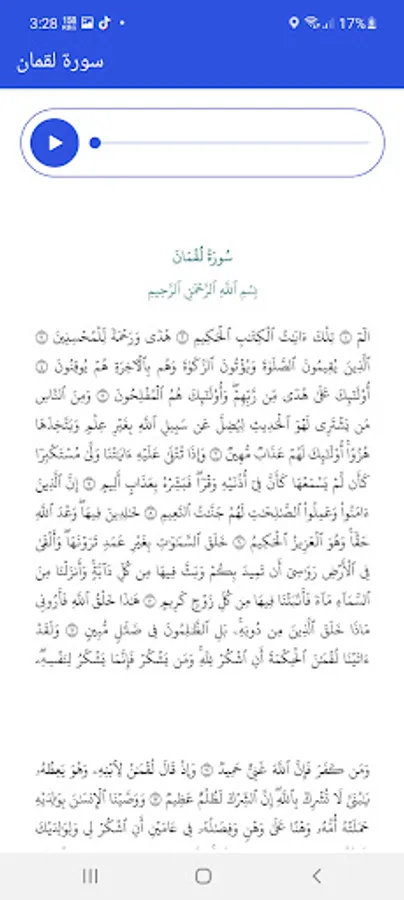 3:28 17%
سورة لقمان
سُورَةُ لُقْمَانَ
بِسْمِ ٱللَّهِ ٱلرَّحْمَٰنِ ٱلرَّحِيمِ
الٓمٓ ۝ تِلْكَ ءَايَٰتُ ٱلْكِتَٰبِ ٱلْحَكِيمِ ۝ هُدًى وَرَحْمَةً لِّلْمُحْسِنِينَ ۝
ٱلَّذِينَ يُقِيمُونَ ٱلصَّلَوٰةَ وَيُؤْتُونَ ٱلزَّكَوٰةَ وَهُم بِٱلْءَاخِرَةِ هُمْ يُوقِنُونَ ۝
أُو۟لَٰٓئِكَ عَلَىٰ هُدًى مِّن رَّبِّهِمْ ۖ وَأُو۟لَٰٓئِكَ هُمُ ٱلْمُفْلِحُونَ ۝ وَمِنَ ٱلنَّاسِ
مَن يَشْتَرِى لَهْوَ ٱلْحَدِيثِ لِيُضِلَّ عَن سَبِيلِ ٱللَّهِ بِغَيْرِ عِلْمٍ وَيَتَّخِذَهَا
هُزُوًا ۚ أُو۟لَٰٓئِكَ لَهُمْ عَذَابٌ مُّهِينٌ ۝ وَإِذَا تُتْلَىٰ عَلَيْهِ ءَايَٰتُنَا وَلَّىٰ مُسْتَكْبِرًا
كَأَن لَّمْ يَسْمَعْهَا كَأَنَّ فِىٓ أُذُنَيْهِ وَقْرًا ۖ فَبَشِّرْهُ بِعَذَابٍ أَلِيمٍ ۝ إِنَّ ٱلَّذِينَ
ءَامَنُوا۟ وَعَمِلُوا۟ ٱلصَّٰلِحَٰتِ لَهُمْ جَنَّٰتُ ٱلنَّعِيمِ ۝ خَٰلِدِينَ فِيهَا ۖ وَعْدَ ٱللَّهِ
حَقًّا ۚ وَهُوَ ٱلْعَزِيزُ ٱلْحَكِيمُ ۝ خَلَقَ ٱلسَّمَٰوَٰتِ بِغَيْرِ عَمَدٍ تَرَوْنَهَا ۖ وَأَلْقَىٰ
فِى ٱلْأَرْضِ رَوَٰسِىَ أَن تَمِيدَ بِكُمْ وَبَثَّ فِيهَا مِن كُلِّ دَآبَّةٍ ۚ وَأَنزَلْنَا مِنَ
ٱلسَّمَآءِ مَآءً فَأَنۢبَتْنَا فِيهَا مِن كُلِّ زَوْجٍ كَرِيمٍ ۝ هَٰذَا خَلْقُ ٱللَّهِ فَأَرُونِى
مَاذَا خَلَقَ ٱلَّذِينَ مِن دُونِهِۦ ۚ بَلِ ٱلظَّٰلِمُونَ فِى ضَلَٰلٍ مُّبِينٍ ۝ وَلَقَدْ
ءَاتَيْنَا لُقْمَٰنَ ٱلْحِكْمَةَ أَنِ ٱشْكُرْ لِلَّهِ ۚ وَمَن يَشْكُرْ فَإِنَّمَا يَشْكُرُ لِنَفْسِهِۦ ۖ
وَمَن كَفَرَ فَإِنَّ ٱللَّهَ غَنِىٌّ حَمِيدٌ ۝ وَإِذْ قَالَ لُقْمَٰنُ لِٱبْنِهِۦ وَهُوَ يَعِظُهُۥ
يَٰبُنَىَّ لَا تُشْرِكْ بِٱللَّهِ ۖ إِنَّ ٱلشِّرْكَ لَظُلْمٌ عَظِيمٌ ۝ وَوَصَّيْنَا ٱلْإِنسَٰنَ بِوَٰلِدَيْهِ
حَمَلَتْهُ أُمُّهُۥ وَهْنًا عَلَىٰ وَهْنٍ وَفِصَٰلُهُۥ فِى عَامَيْنِ أَنِ ٱشْكُرْ لِى وَلِوَٰلِدَيْكَ